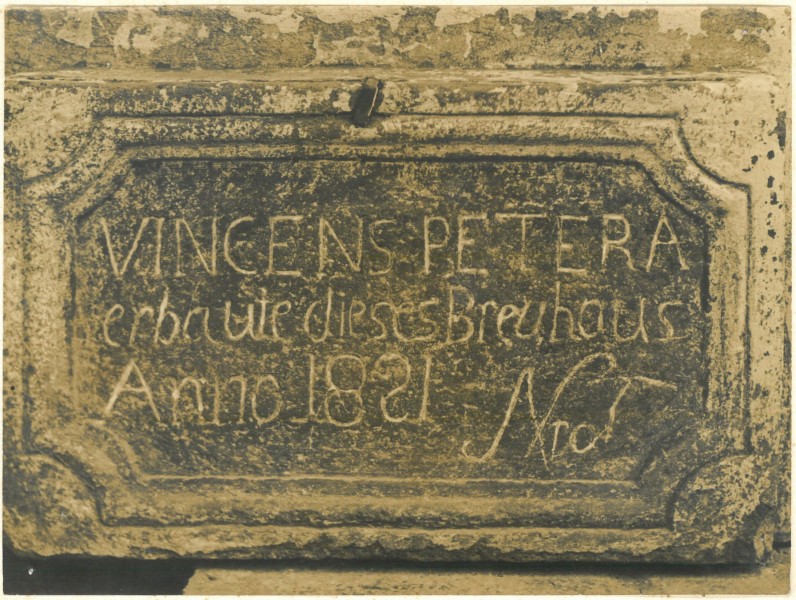 VINCENS PETERA
erbaute dieses Breuhaus
Anno 1821 Nro 1